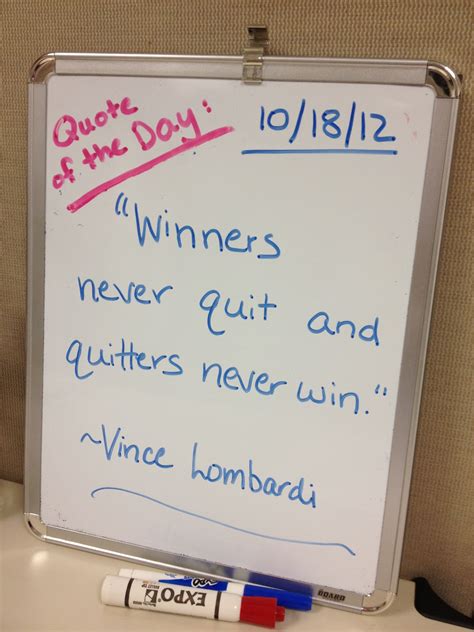 Quote
of the Day:
10/18/12
"Winners
never quit and
quitters never win."
~Vince Lombardi
BOARD
EXPO